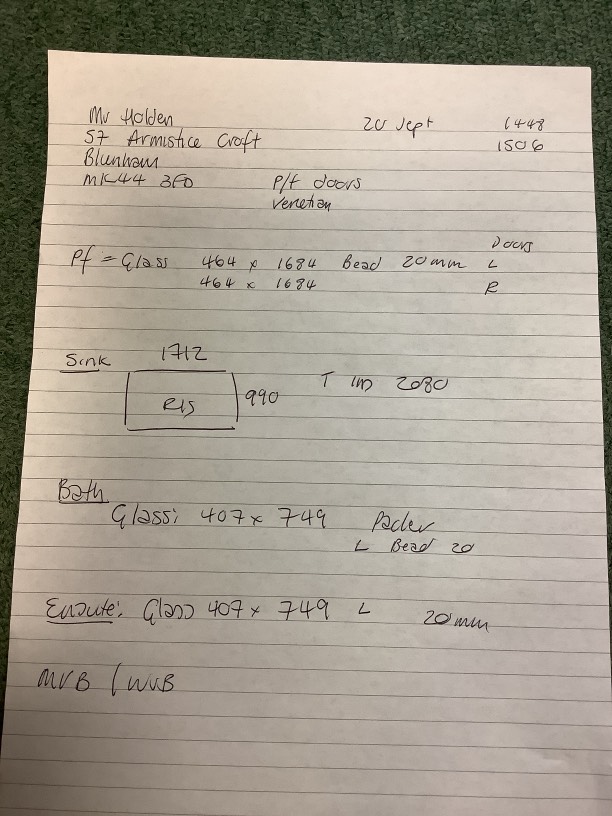 Mr Holden 20 Sept 1448
57 Armistice Croft 1506
Blunham
MK44 3FD P/f doors
Venetian
Doors
Pf = Glass 464 x 1684 Bead 20mm L
464 x 1684 R
Sink 1712
R/S 990 T 2080
Bath
Glass: 407 x 749 Packer
L Bead 20
Ensute: Glass 407 x 749 L 20mm
MVB / WVB